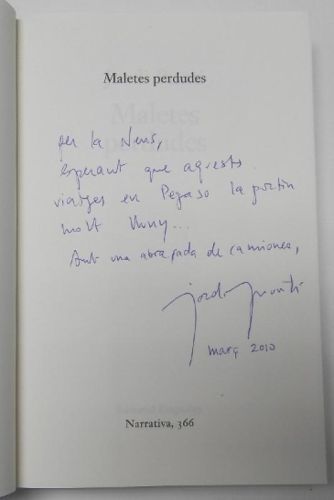 Maletes perdudes
per la Neus,
esperant que aquests
viatges en Pegaso la portin
molt lluny...
Amb una abraçada de camions,
Jordi Puntí
març 2010
Narrativa, 366